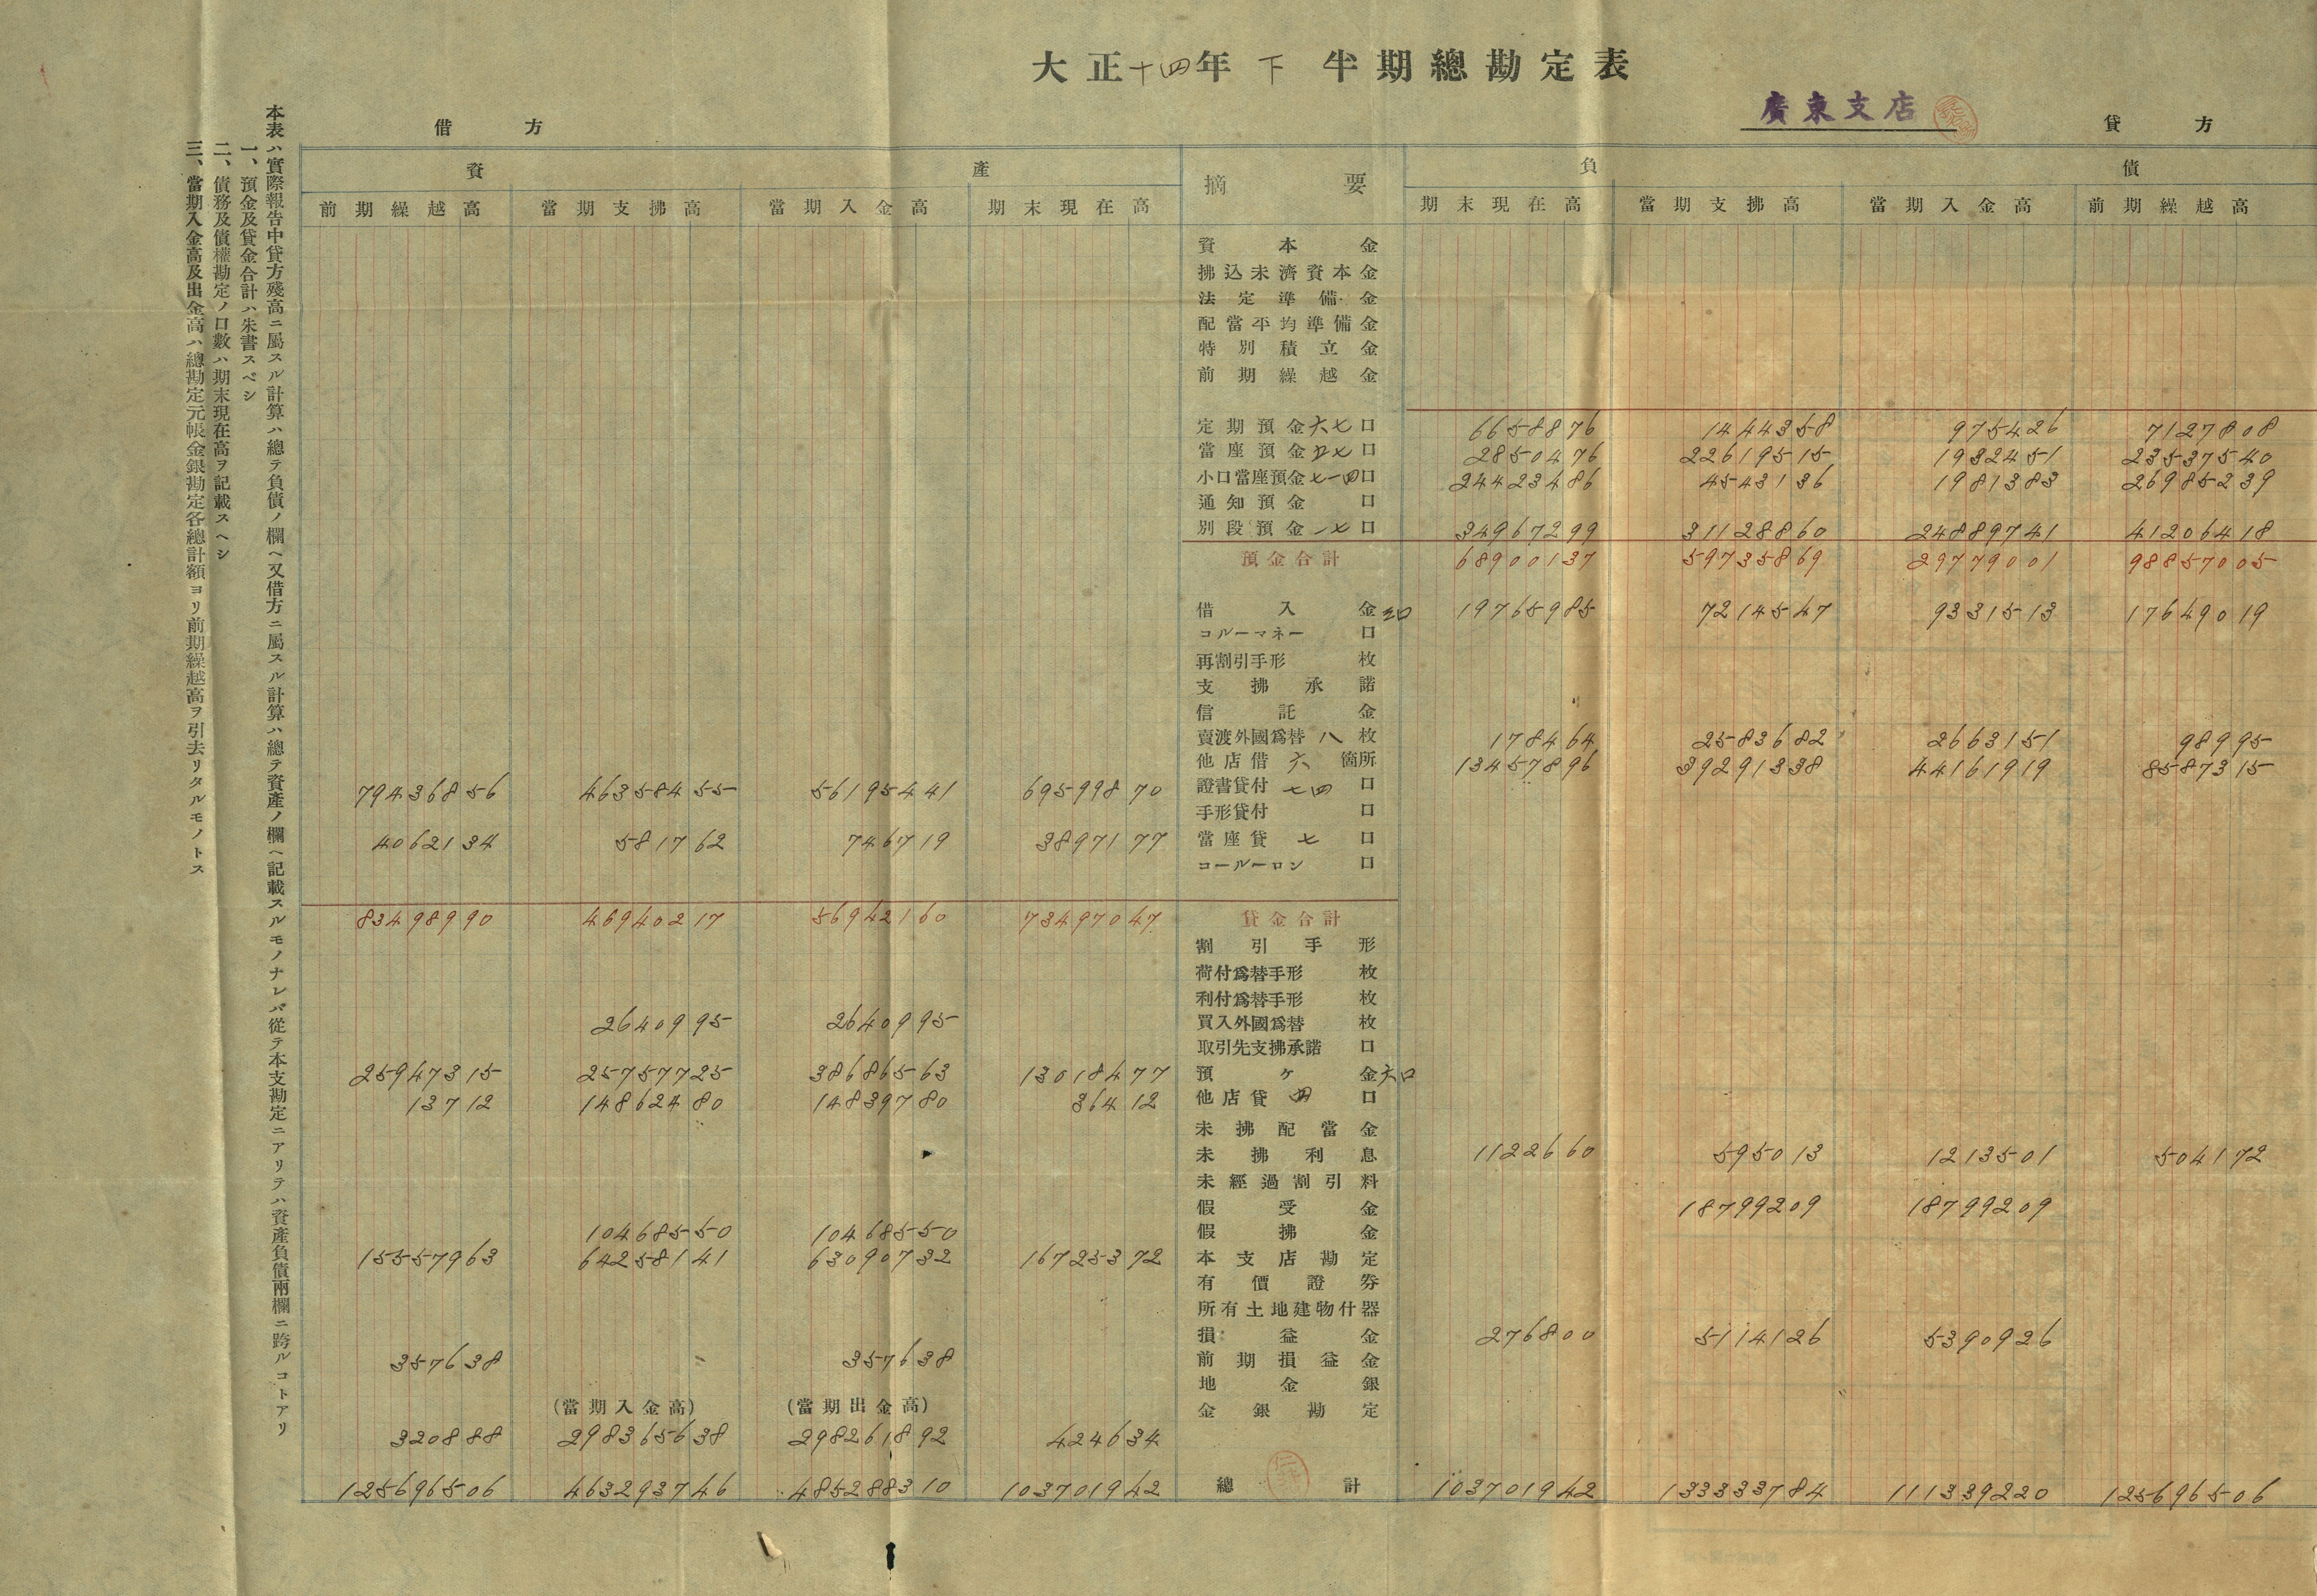 大正十四年下半期總勘定表
廣東支店
借方 貸方
資產 摘要 負債
前期繰越高 當期支拂高 當期入金高 期末現在高 期末現在高 當期支拂高 當期入金高 前期繰越高
資本金
拂込未濟資本金
法定準備金
配當平均準備金
特別積立金
前期繰越金
定期預金六七口 6658876 1444358 975426 7127808
當座預金五七口 2850476 22619515 1932451 23537540
小口當座預金七一四口 24423486 4543136 1981383 26985239
通知預金口
別段預金一七口 34967299 31128860 24889741 41206418
預金合計 68900137 59735869 29779001 98857005
借入金三口 19765985 7214547 9331513 17649019
コルーマネー口
再割引手形枚
支拂承諾
信託金
賣渡外國爲替八枚 178464 2583682 2663151 98995
他店借六箇所 13457896 39291338 44161919 8587315
79436856 46358455 56195441 69599870 證書貸付七四口
手形貸付口
4062134 581762 746719 3897177 當座貸七口
コールーロン口
83498990 46940217 56942160 73497047 貸金合計
割引手形
荷付爲替手形枚
利付爲替手形枚
2640995 2640995 買入外國爲替枚
取引先支拂承諾口
25947315 25757725 38686563 13018477 預ヶ金六口
13712 14862480 14839780 36412 他店貸四口
未拂配當金
未拂利息 1122660 595013 1213501 504172
未經過割引料
假受金 18799209 18799209
10468550 10468550 假拂金
15557963 64258141 63090732 16725372 本支店勘定
有價證券
所有土地建物什器
損益金 276800 5114126 5390926
357638 357638 前期損益金
地金銀
(當期入金高) (當期出金高) 金銀勘定
320888 298365638 298261892 424634
125696506 463293746 485288310 103701942 總計 103701942 133333784 111339220 125696506
本表ハ實際報告中貸方殘高ニ屬スル計算ハ總テ負債ノ欄ヘ又借方ニ屬スル計算ハ總テ資產ノ欄ヘ記載スルモノナレバ從テ本支勘定ニアリテハ資產負債兩欄ニ跨ルコトアリ
一、預金及貸金合計ハ朱書スベシ
二、債務及債權勘定ノ口數ハ期末現在高ヲ記載スヘシ
三、當期入金高及出金高ハ總勘定元帳金銀勘定各總計額ヨリ前期繰越高ヲ引去リタルモノトス